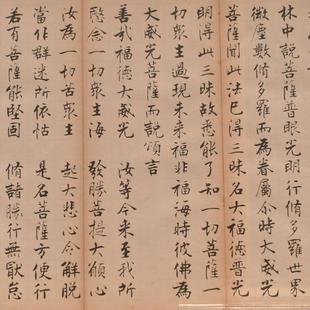 林中説菩薩普眼光明行脩多羅世界
微塵數脩多羅而為眷屬尒時大威光
菩薩聞此法已得三昧名大福德普光
明得此三昧故悉能了知一切菩薩一
切衆生過現未来福非福海時彼佛為
大威光菩薩而説頌言
善哉福德大威光　汝等今来至我所
愍念一切衆生海　發勝菩提大願心
汝為一切苦衆生　起大悲心令解脱
當作群迷所依怙　是名菩薩方便行
若有菩薩能堅固　脩諸勝行無猒怠